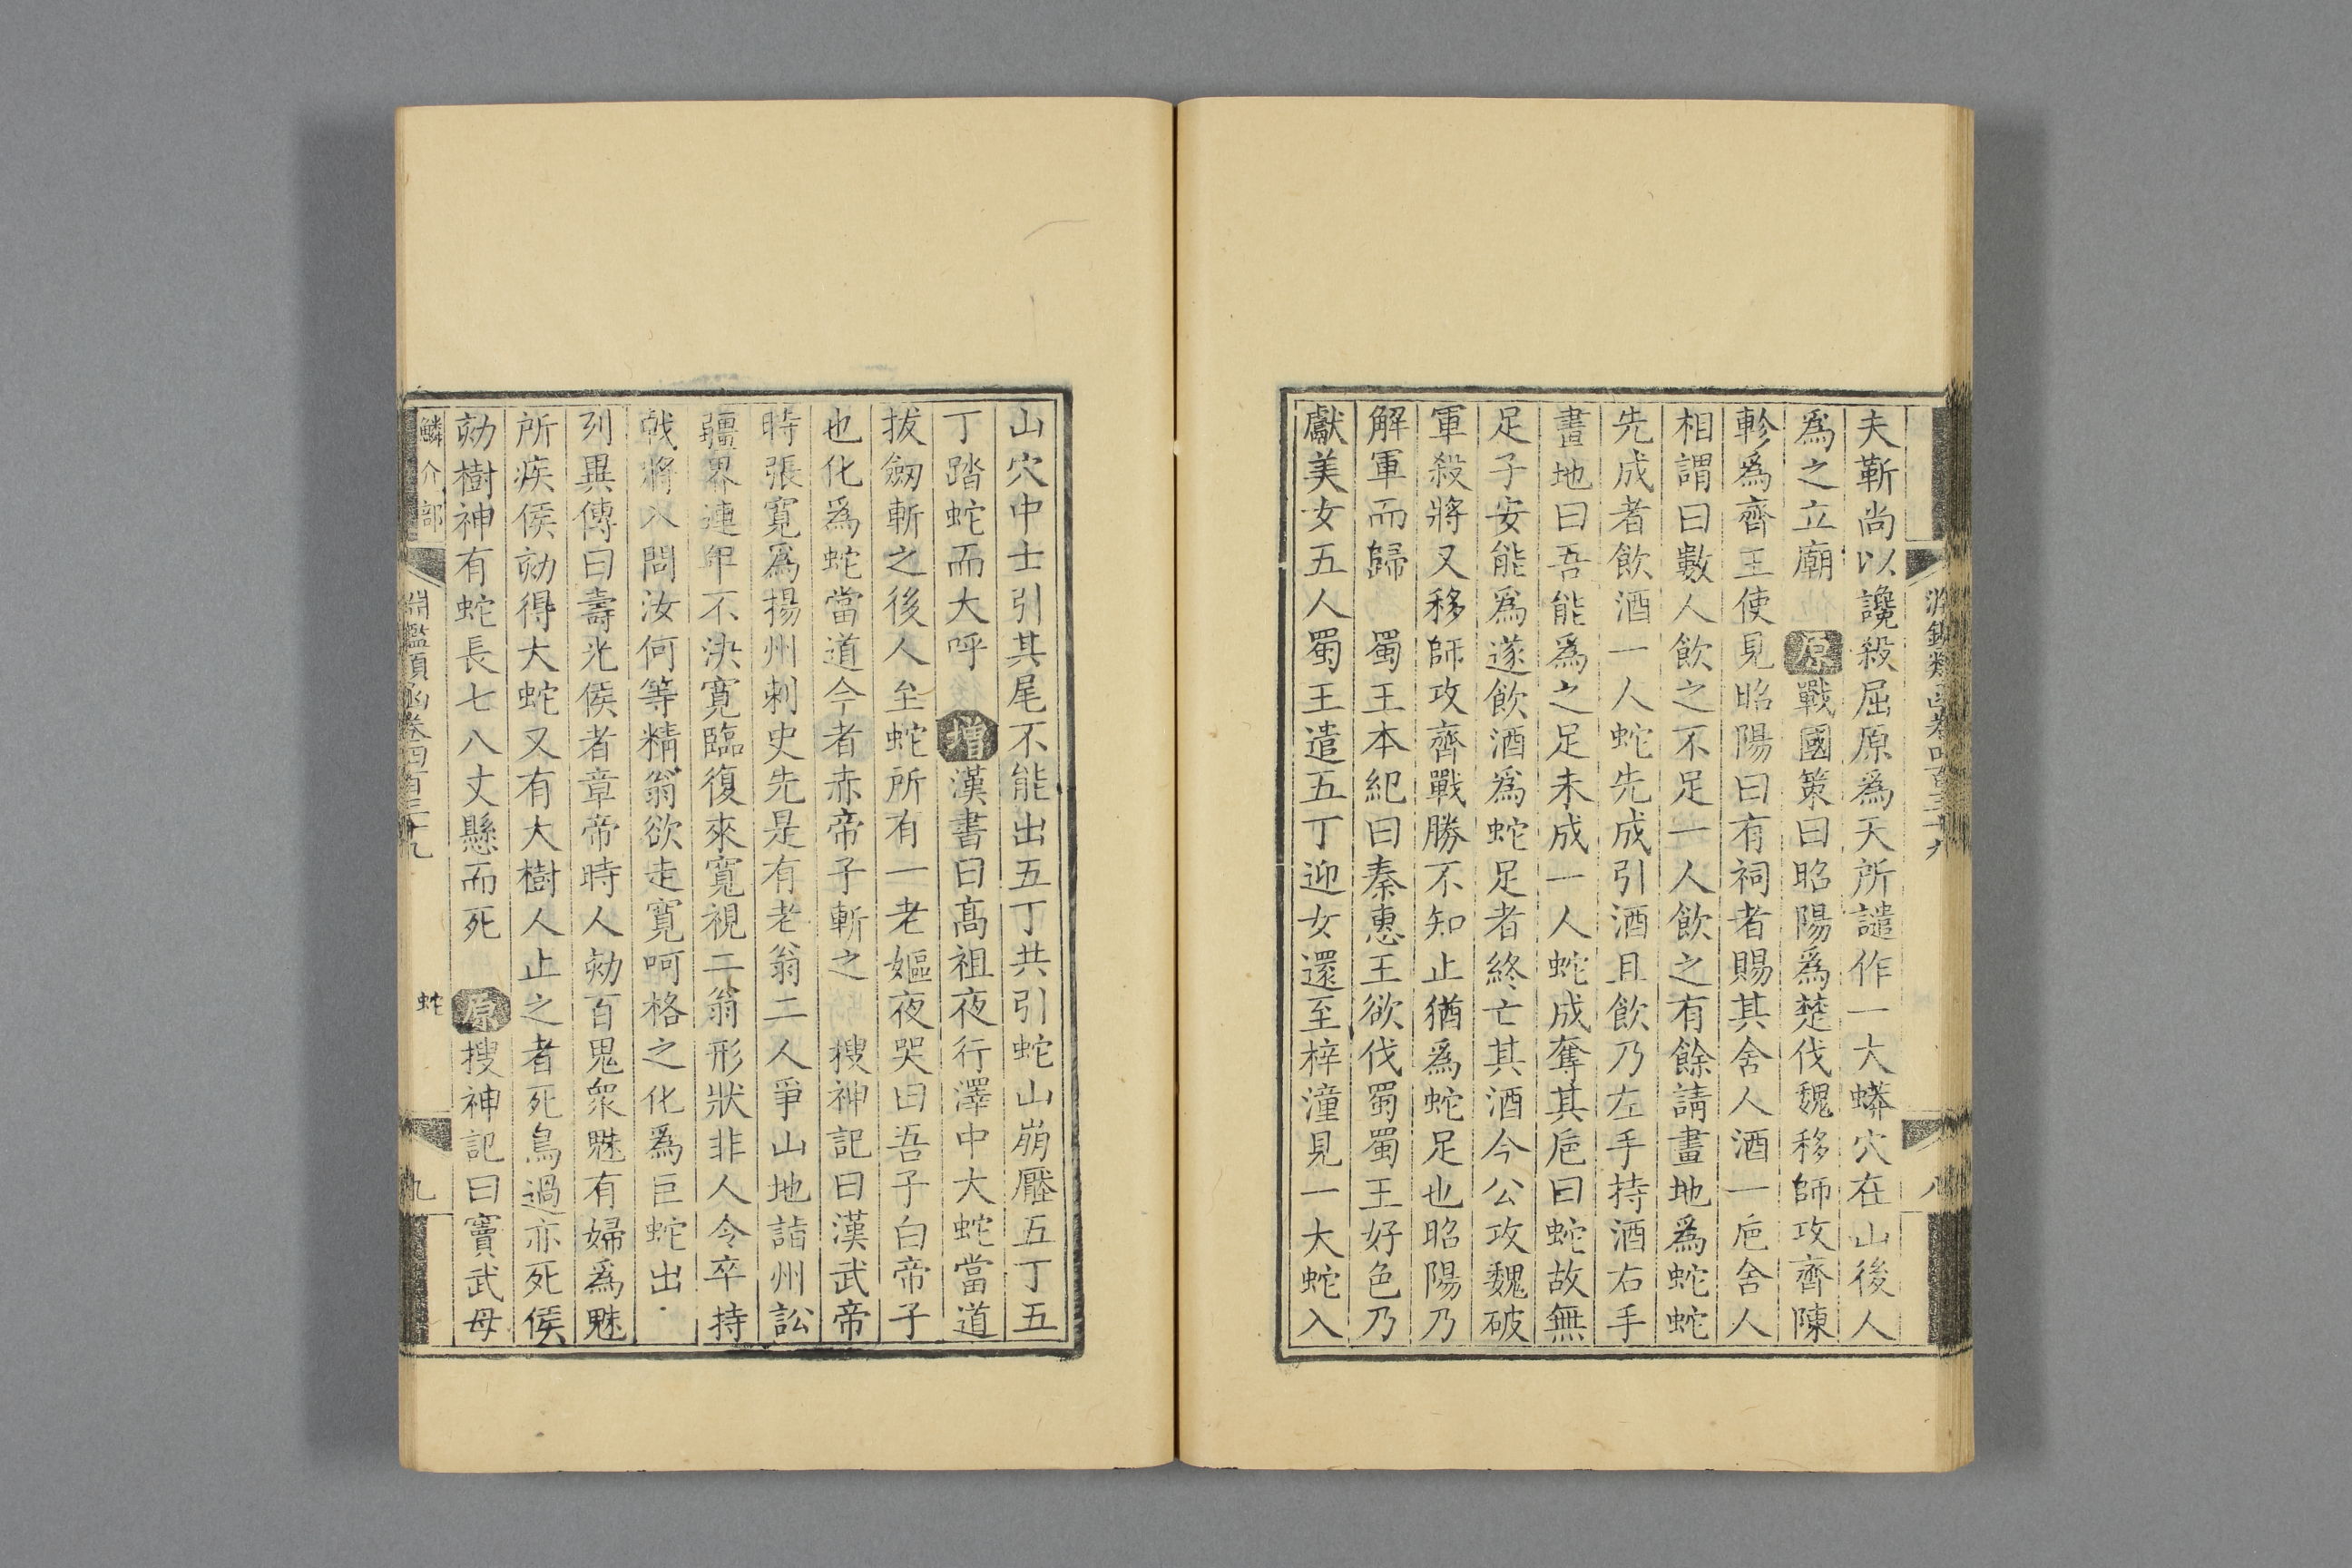 夫靳尚以讒殺屈原爲天所譴作一大蟒穴在山後人
爲之立廟 原 戰國策曰昭陽爲楚伐魏移師攻齊陳
軫爲齊王使見昭陽曰有祠者賜其舍人酒一巵舍人
相謂曰數人飮之不足一人飮之有餘請畫地爲蛇蛇
先成者飮酒一人蛇先成引酒且飮乃左手持酒右手
畫地曰吾能爲之足未成一人蛇成奪其巵曰蛇故無
足子安能爲遂飮酒爲蛇足者終亡其酒今公攻魏破
軍殺將又移師攻齊戰勝不知止猶爲蛇足也昭陽乃
解軍而歸 蜀王本紀曰秦惠王欲伐蜀蜀王好色乃
獻美女五人蜀王遣五丁迎女還至梓潼見一大蛇入
山穴中士引其尾不能出五丁共引蛇山崩壓五丁五
丁踏蛇而大呼 增 漢書曰高祖夜行澤中大蛇當道
拔劒斬之後人至蛇所有一老嫗夜哭曰吾子白帝子
也化爲蛇當道今者赤帝子斬之 搜神記曰漢武帝
時張寬爲揚州刺史先是有老翁二人爭山地詣州訟
疆界連年不決寬臨復來寬視二翁形狀非人令卒持
戟將入問汝何等精翁欲走寬呵格之化爲巨蛇出
列異傳曰壽光侯者章帝時人劾百鬼衆魅有婦爲魅
所疾侯劾得大蛇又有大樹人止之者死鳥過亦死侯
劾樹神有蛇長七八丈懸而死 原 搜神記曰竇武母
鱗介部 淵鑑類函卷四百三十九 蛇 九